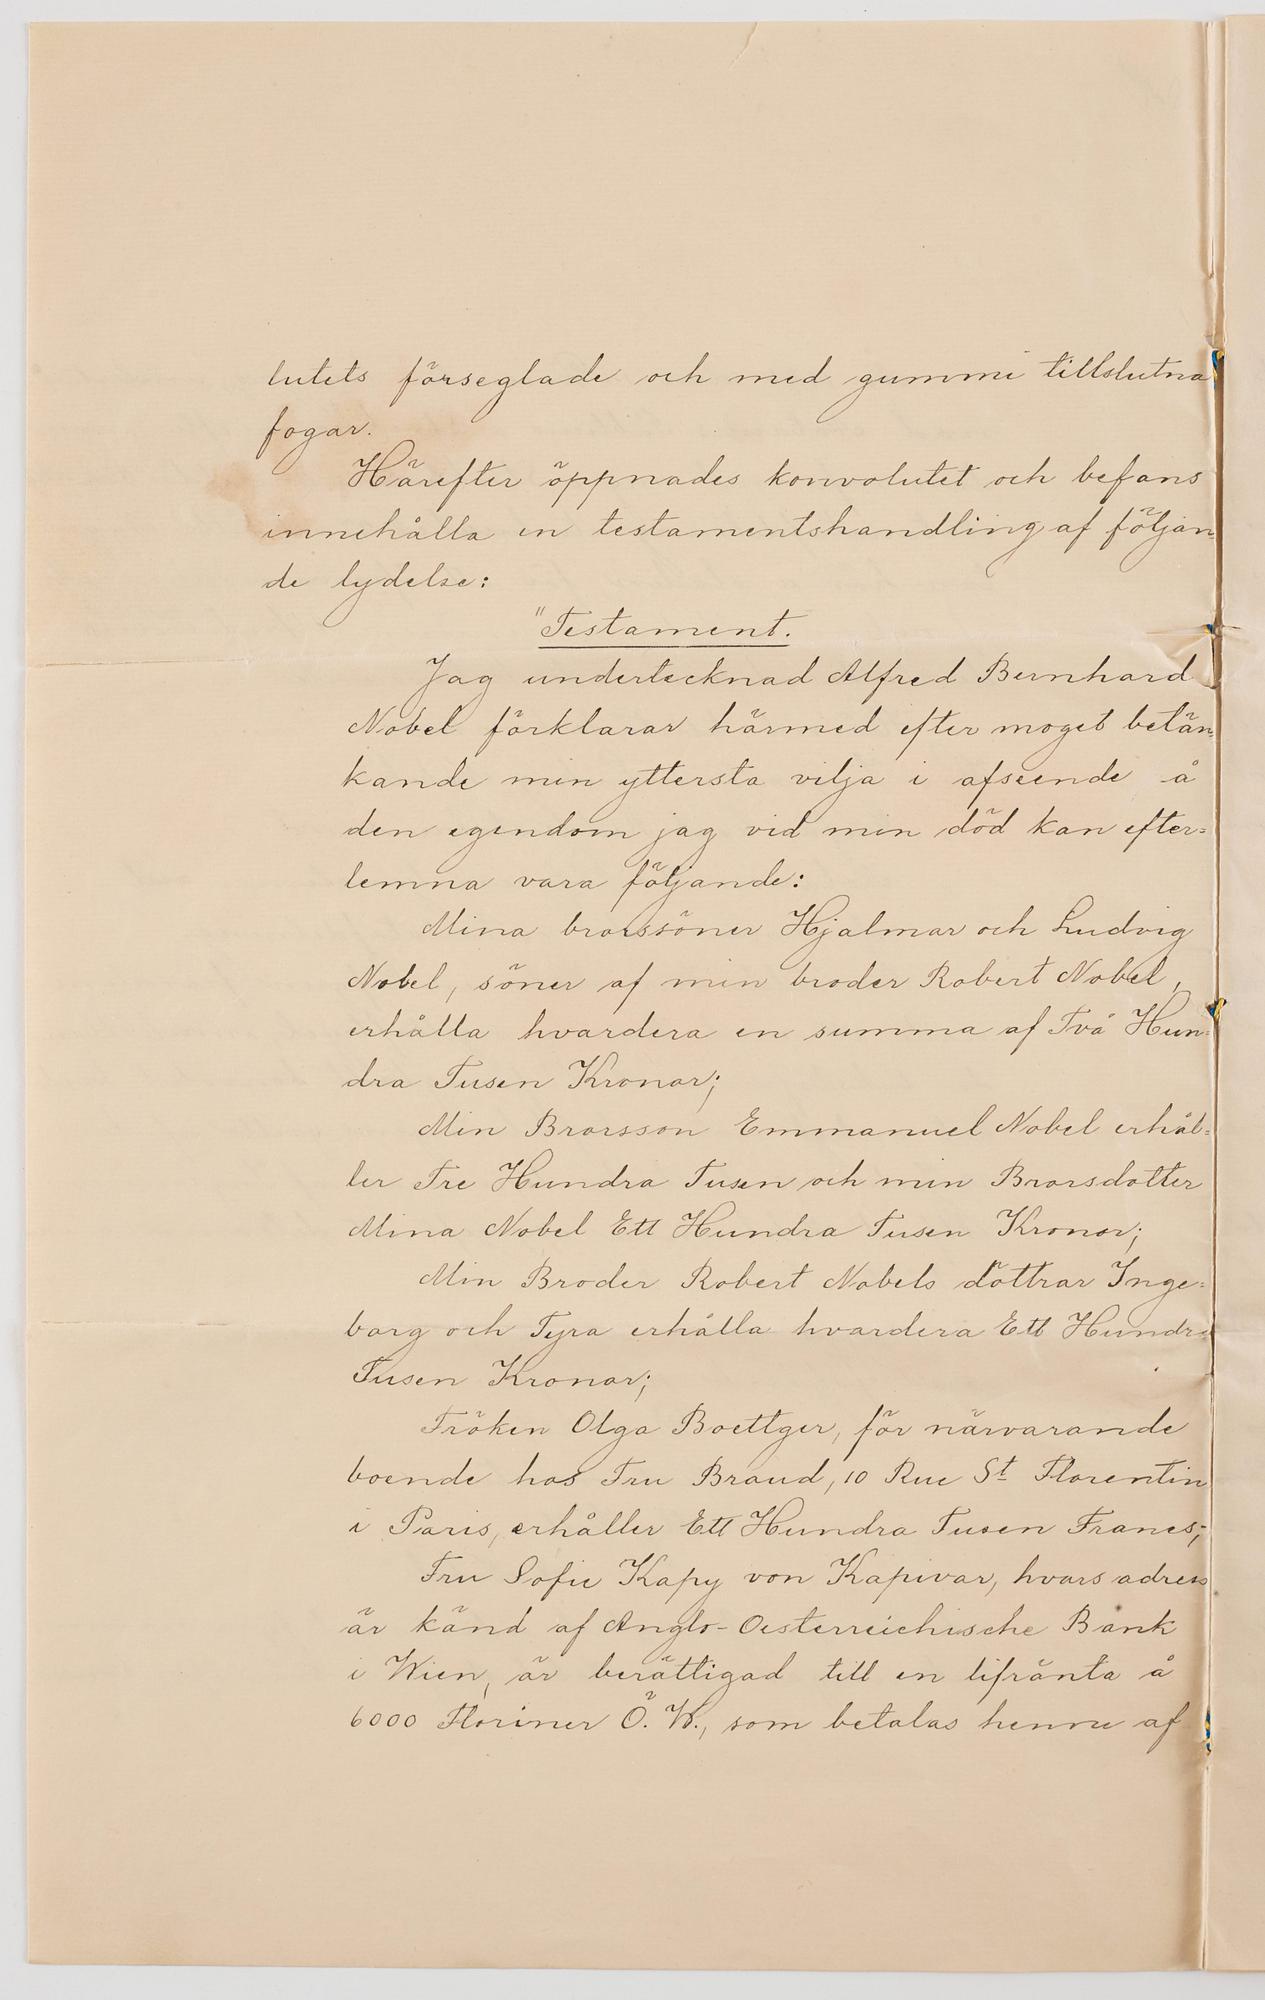 lutets förseglade och med gummi tillslutna
fogar.
Härefter öppnades konvolutet och befans
innehålla en testamentshandling af följan-
de lydelse:
"Testament.
Jag undertecknad Alfred Bernhard
Nobel förklarar härmed efter moget betän-
kande min yttersta vilja i afseende å
den egendom jag vid min död kan efter-
lemna vara följande:
Mina brorssöner Hjalmar och Ludvig
Nobel, söner af min broder Robert Nobel,
erhålla hvardera en summa af Två Hun-
dra Tusen Kronor;
Min Brorsson Emmanuel Nobel erhål-
ler Tre Hundra Tusen och min Brorsdotter
Mina Nobel Ett Hundra Tusen Kronor;
Min Broder Robert Nobels döttrar Inge-
borg och Tyra erhålla hvardera Ett Hundra
Tusen Kronor;
Fröken Olga Boettger, för närvarande
boende hos Fru Brand, 10 Rue St Florentin
i Paris, erhåller Ett Hundra Tusen Francs;
Fru Sofie Kapy von Kapivar, hvars adress
är känd af Anglo-Oesterreichische Bank
i Wien, är berättigad till en lifränta å
6000 Floriner Ö. W., som betalas henne af